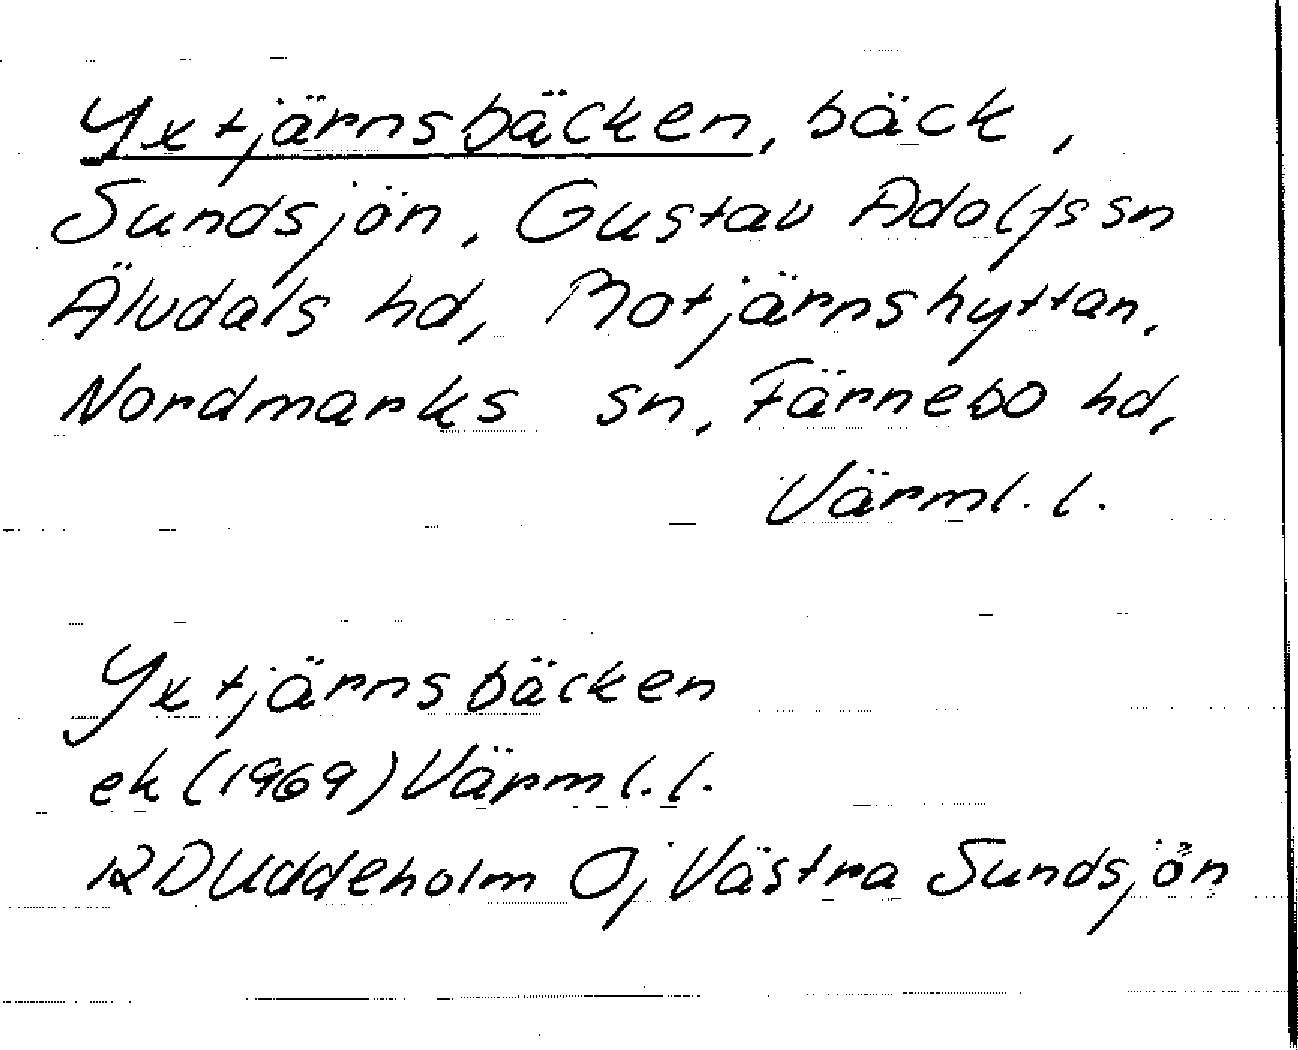 Yxtjärnsbäcken, bäck,
Sundsjön, Gustav Adolfs sn
Älvdals hd, Motjärnshyttan,
Nordmarks sn, Färnebo hd,
Värml. l.
Yxtjärnsbäcken
ek (1969) Värml. l.
RD Uddeholm Oj Västra Sundsjön